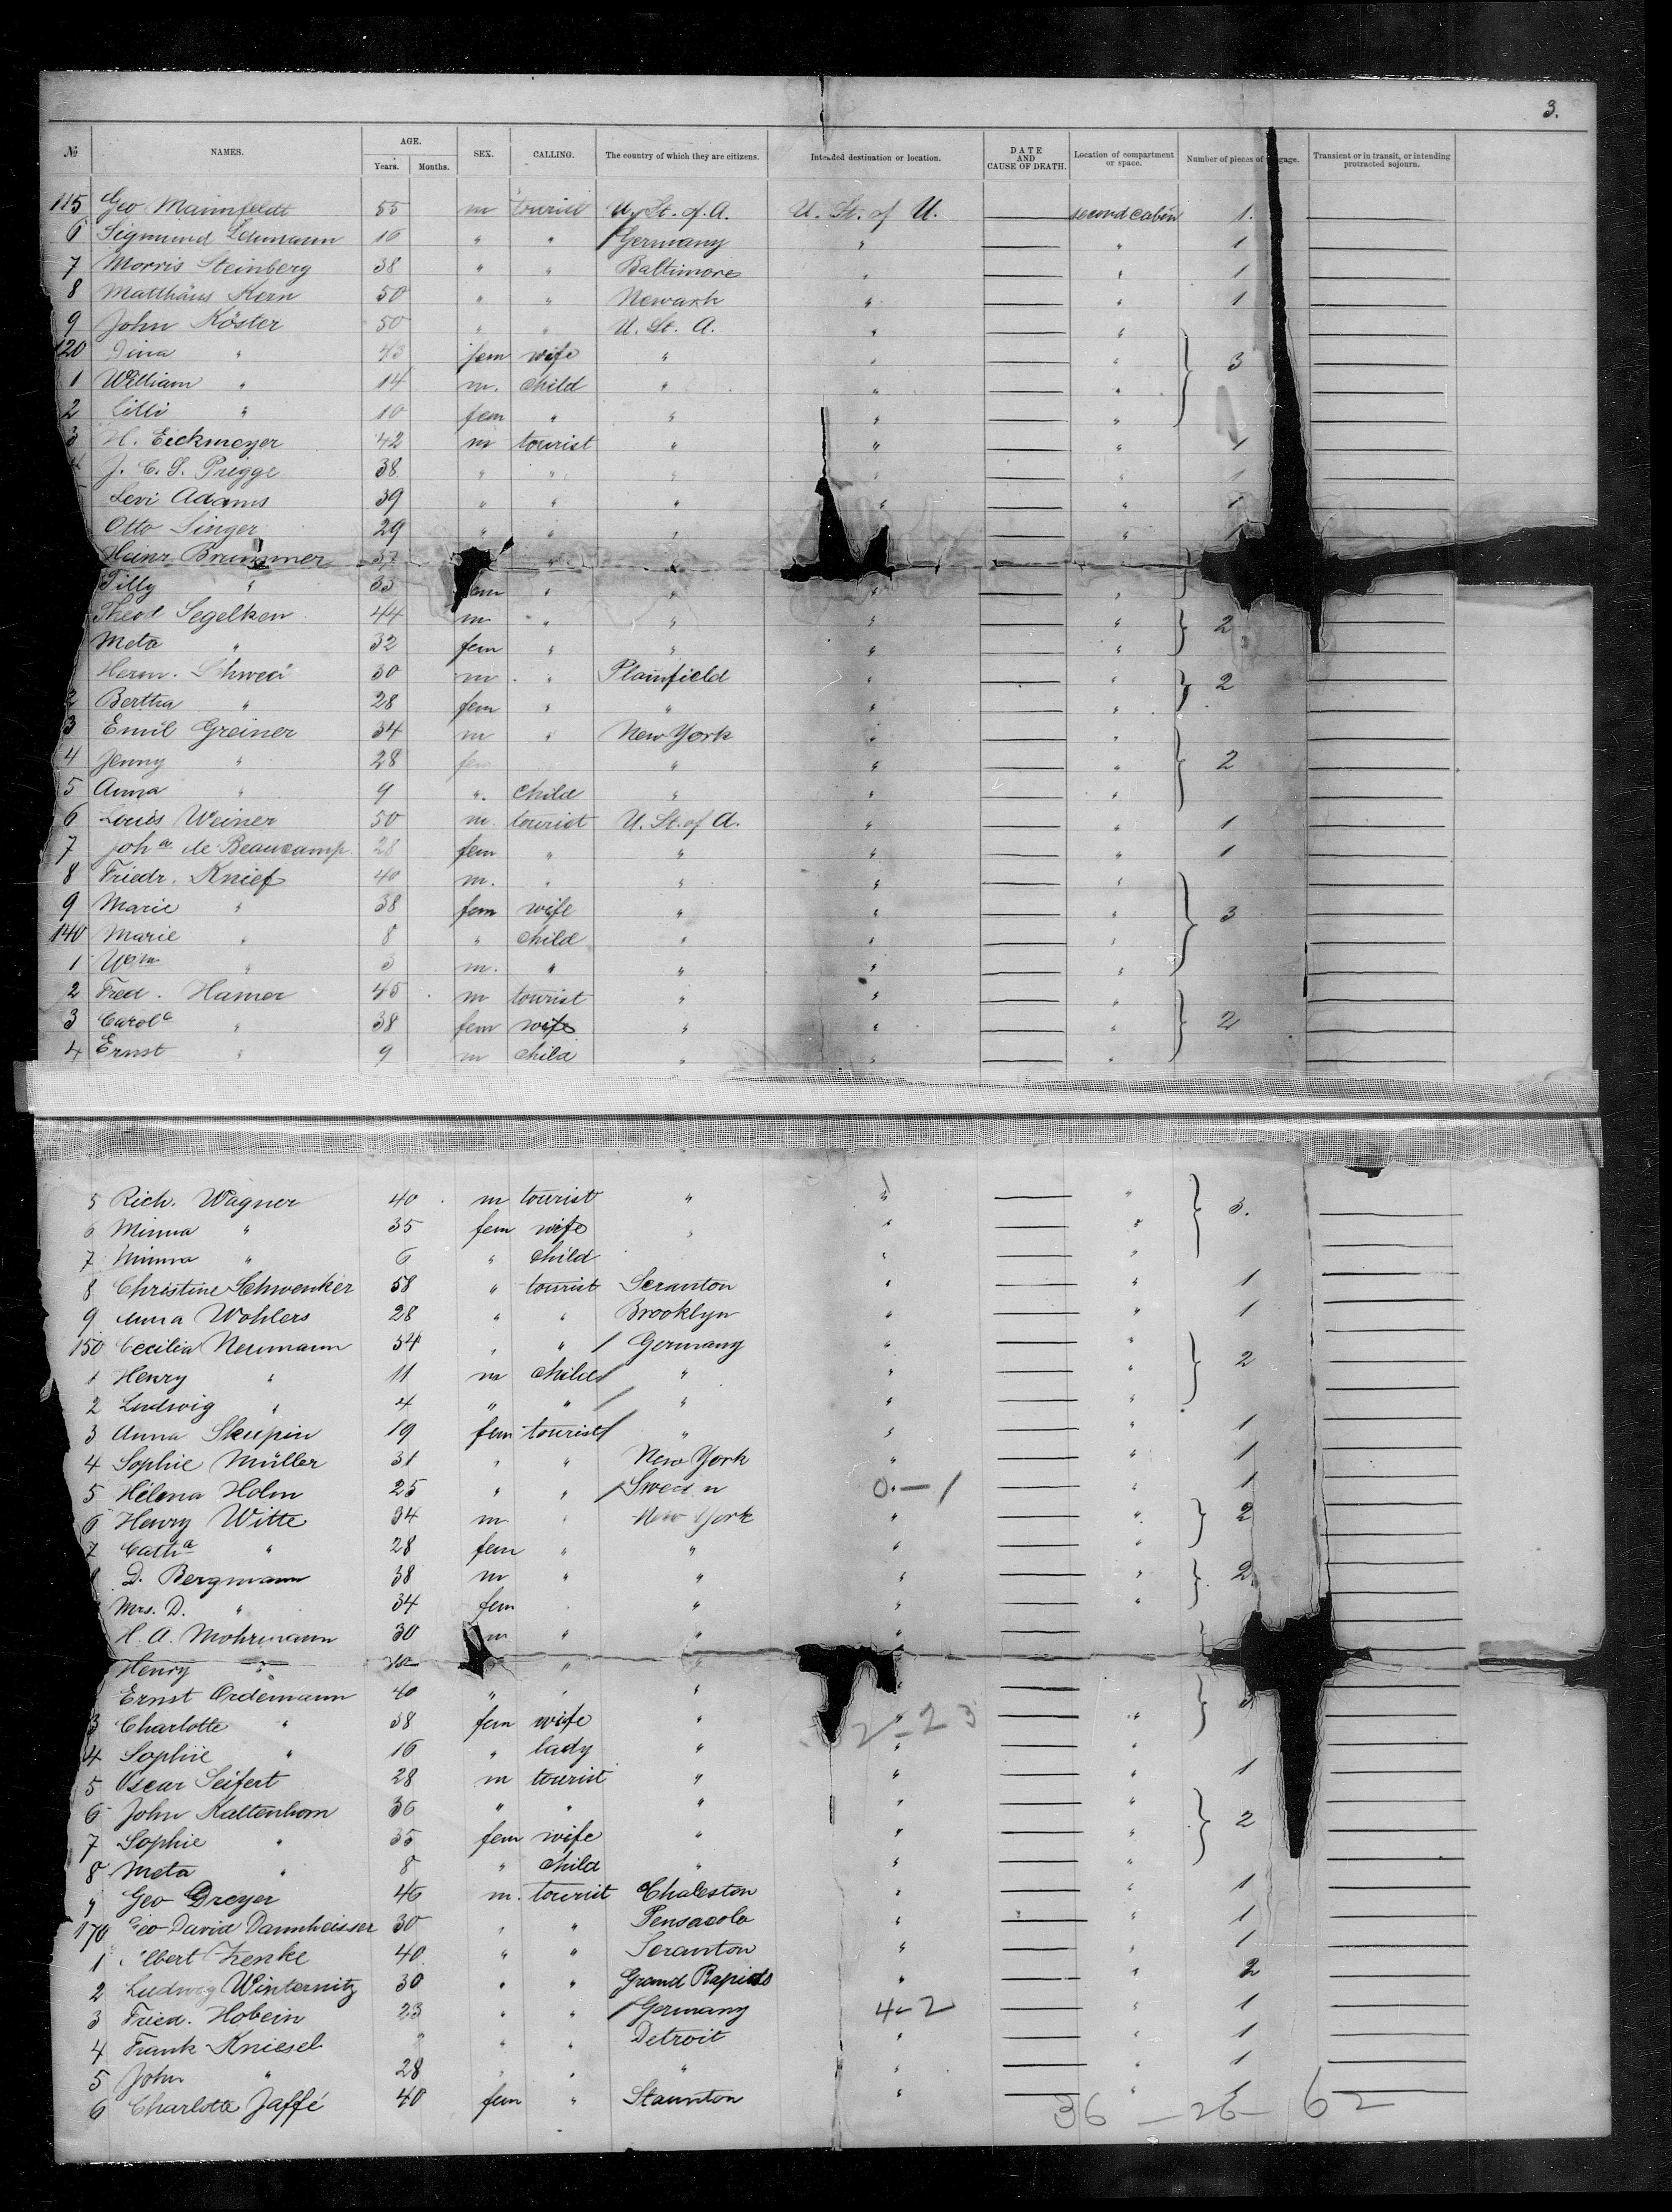 3.
№ NAMES. AGE. Years. Months. SEX. CALLING. The country of which they are citizens. Intended destination or location. DATE AND CAUSE OF DEATH. Location of compartment or space. Number of pieces of gage. Transient or in transit, or intending protracted sojourn.
115 Geo Mannfeldt 55 m tourist U. St. of A. U. St. of U. — second cabin 1. —
6 Sigmund Lehmann 16 " " Germany " — " 1 —
7 Morris Steinberg 38 " " Baltimore " — " 1 —
8 Matthäus Kern 50 " " Newark " — " 1 —
9 John Köster 50 " " U. St. A. " — " —
120 Dina " 43 fem wife " " — " 3 —
1 William " 14 m. child " " — " —
2 Lilli " 10 fem " " " — " —
3 H. Eickmeyer 42 m tourist " " — " 1 —
J. C. S. Prigge 38 " " " " — " 1 —
Levi Adams 39 " " " " — " 1 —
Otto Singer 29 " " " — " 1 —
Heinr Brummer " " — —
Tilly " 33 fem " " " — " —
Theod Segelken 44 m " " " — " 2 —
Meta " 32 fem " " " — " —
Herm. 30 m " Plainfield " — " 2 —
2 Bertha " 28 fem " " " — " —
3 Emil Greiner 34 m " New York " — " —
4 Jenny " 28 fem " " — " 2 —
5 Anna " 9 ". child " " — " —
6 Louis Weiner 50 m. tourist U. St. of A. " — " 1 —
7 Joh a de Beaucamp 28 fem " " " — " 1 —
8 Friedr. Knief 40 m. " " " — " —
9 Marie " 38 fem wife " " — " 3 —
140 Marie " 8 " child " " — " —
1 Wm " 3 m. " " " — " —
2 Fred. Hamer 45 m tourist " " — " —
3 Carol e " 38 fem wife " " — " 2 —
4 Ernst " 9 m child " " — " —
5 Rich. Wagner 40 m tourist " " — " 3. —
6 Minna " 35 fem wife " " — " —
7 Minna " 6 " child " — " —
8 Christine Schwenker 58 " tourist Scranton " — " 1 —
9 Anna Wohlers 28 " " Brooklyn " — " 1 —
150 Cecilia Neumann 34 " " / Germany " — " —
1 Henry " 11 m child / " " — " 2 —
2 Ludwig " 4 " " / " " — " —
3 Anna Skupin 19 fem tourist / " " — " 1 —
4 Sophie Müller 31 " " New York " — " 1 —
5 Helena Holm 25 " " / Swed n 0 — 1 — " 1 —
6 Henry Witte 34 m " New York " — " 2 —
7 Cath a " 28 fem " " " — " —
D. Bergmann 38 m " " " — " 2 —
Mrs. D. " 34 fem " " — " —
H. A. Mohrmann 30 m " " " — —
Henry " " " — —
Ernst Ordemann 40 " " " " — —
3 Charlotte " 38 fem wife " 2-23 — " —
4 Sophie " 16 " lady " " — " —
5 Oscar Seifert 28 m tourist " " — " 1 —
6 John Kaltenhorn 36 " " " " — " —
7 Sophie " 35 fem wife " " — " 2 —
8 Meta " 8 " child " " — " —
9 Geo Dreyer 46 m. tourist Chaleston " — " 1 —
170 Geo David Dannheisser 30 " " Pensacola " — " 1 —
1 lbert Zenke 40 " " Scranton " — " 1 —
2 Ludwig Winternitz 30 " " Grand Rapids " — " 2 —
3 Fried. Hobein 23 " " / Germany 4-2 — " 1 —
4 Frank Kniesel " " Detroit " — " 1 —
5 John " 28 " " " " — " 1 —
6 Charlotta Jaffé 40 fem " Staunton " — " 1 —
36 — 26 — 62